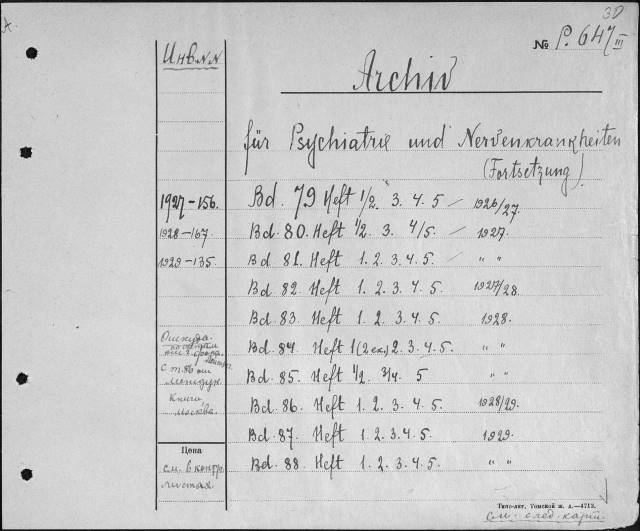 30
№ P. 647 III
Инв. N.N
Archiv
für Psychiatrie und Nervenkrankheiten
(Fortsetzung)
1927-156. Bd. 79 Heft 1/2. 3. 4. 5 1926/27.
1928-167 Bd. 80. Heft 1/2 3. 4/5. 1927.
1929-135 Bd. 81. Heft 1. 2. 3. 4. 5. " "
Bd. 82 Heft 1. 2. 3. 4. 5. 1927/28.
Bd. 83 Heft 1. 2. 3. 4. 5. 1928.
Откуда.
Bd. 84 Heft 1 (2 ек) 2. 3. 4. 5. " "
Bd. 85. Heft 1/2 3/4. 5 " "
Книга,
Москва.
Bd. 86. Heft 1. 2. 3. 4. 5. 1928/29.
Bd. 87 Heft 1. 2. 3. 4. 5. 1929.
Цена
см. в контр. Bd. 88 Heft 1. 2. 3. 4. 5. " "
листах
Типо-лит. Томской ж. д.—4712.
см. след. карт.